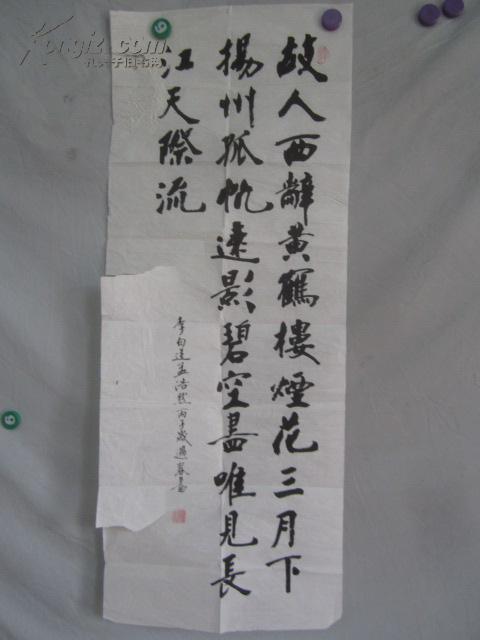 故人西辭黄鶴樓煙花三月下
揚州孤帆遠影碧空盡唯見長
江天際流
李白送孟浩然丙子歲書
孔夫子旧书网